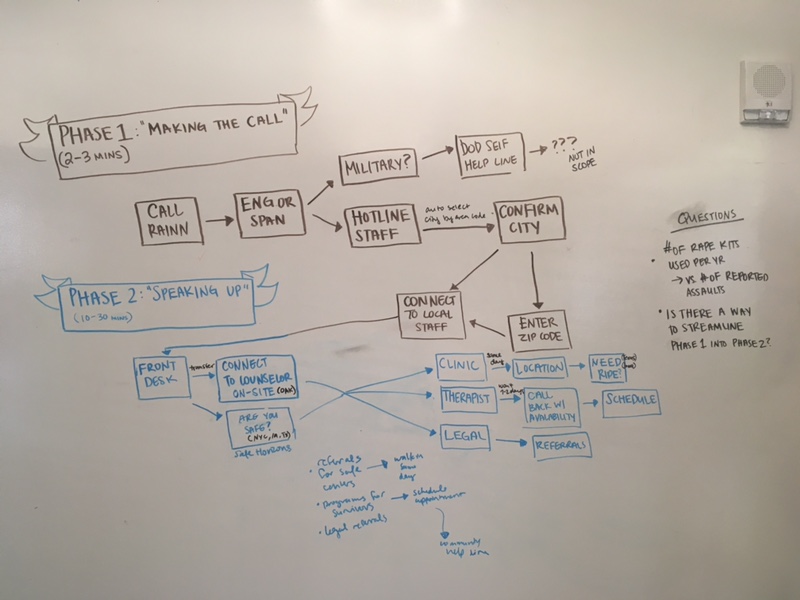 PHASE 1: "MAKING THE CALL"
(2-3 MINS)
CALL
RAINN
ENG OR
SPAN
MILITARY?
DOD SELF
HELP LINE
???
NOT IN
SCOPE
HOTLINE
STAFF
auto select
city by area code
CONFIRM
CITY
CONNECT
TO LOCAL
STAFF
ENTER
ZIP CODE
PHASE 2: "SPEAKING UP"
(10-30 mins)
FRONT
DESK
transfer
CONNECT
TO COUNSELOR
ON-SITE (OAK)
ARE YOU
SAFE?
Safe Horizons
CLINIC
same
day
LOCATION
NEED
RIDE?
THERAPIST
wait
1-2 days
CALL
BACK W/
AVAILABILITY
SCHEDULE
LEGAL
REFERRALS
• referrals
for safe
centers
walk in
same
day
• programs for
survivors
schedule
appointment
• legal referrals
community
help line
QUESTIONS
• # OF RAPE KITS
USED PER YR
→ VS. # OF REPORTED
ASSAULTS
• IS THERE A WAY
TO STREAMLINE
PHASE 1 INTO PHASE 2?